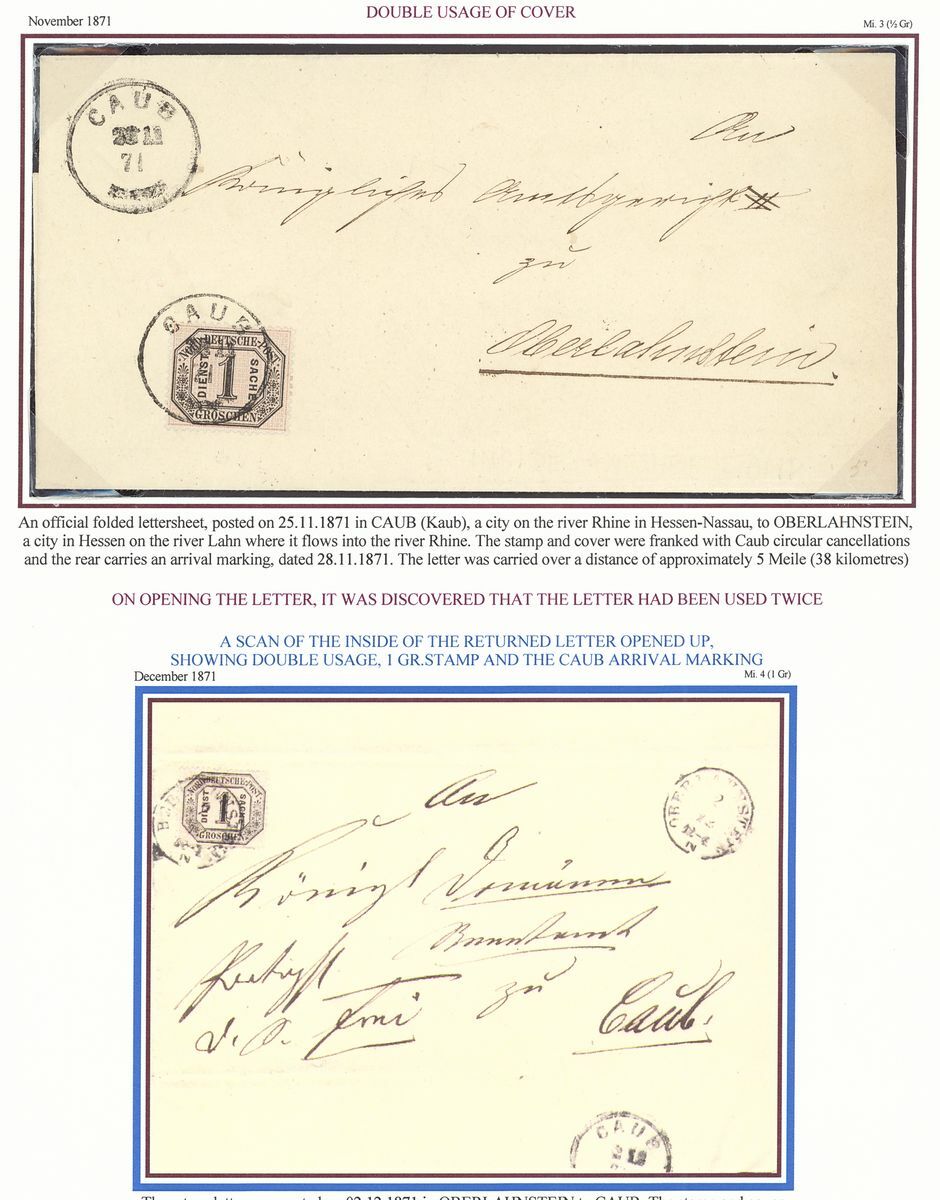 DOUBLE USAGE OF COVER
November 1871
Mi. 3 (½ Gr)
CAUB
71
An
Königliches Amtsgericht
zu
Oberlahnstein
CAUB
NORDDEUTSCHE-POST
DIENST 1 SACHE
GROSCHEN
An official folded lettersheet, posted on 25.11.1871 in CAUB (Kaub), a city on the river Rhine in Hessen-Nassau, to OBERLAHNSTEIN,
a city in Hessen on the river Lahn where it flows into the river Rhine. The stamp and cover were franked with Caub circular cancellations
and the rear carries an arrival marking, dated 28.11.1871. The letter was carried over a distance of approximately 5 Meile (38 kilometres)
ON OPENING THE LETTER, IT WAS DISCOVERED THAT THE LETTER HAD BEEN USED TWICE
A SCAN OF THE INSIDE OF THE RETURNED LETTER OPENED UP,
SHOWING DOUBLE USAGE, 1 GR.STAMP AND THE CAUB ARRIVAL MARKING
December 1871
Mi. 4 (1 Gr)
NORDDEUTSCHE-POST
DIENST 1 SACHE
GROSCHEN
OBERLAHNSTEIN
2
12
An
Königl Domänen
Rentamt
zu
d. S. frei
Caub.
CAUB
The return letter was posted on 02.12.1871 in OBERLAHNSTEIN to CAUB. The stamp and cover